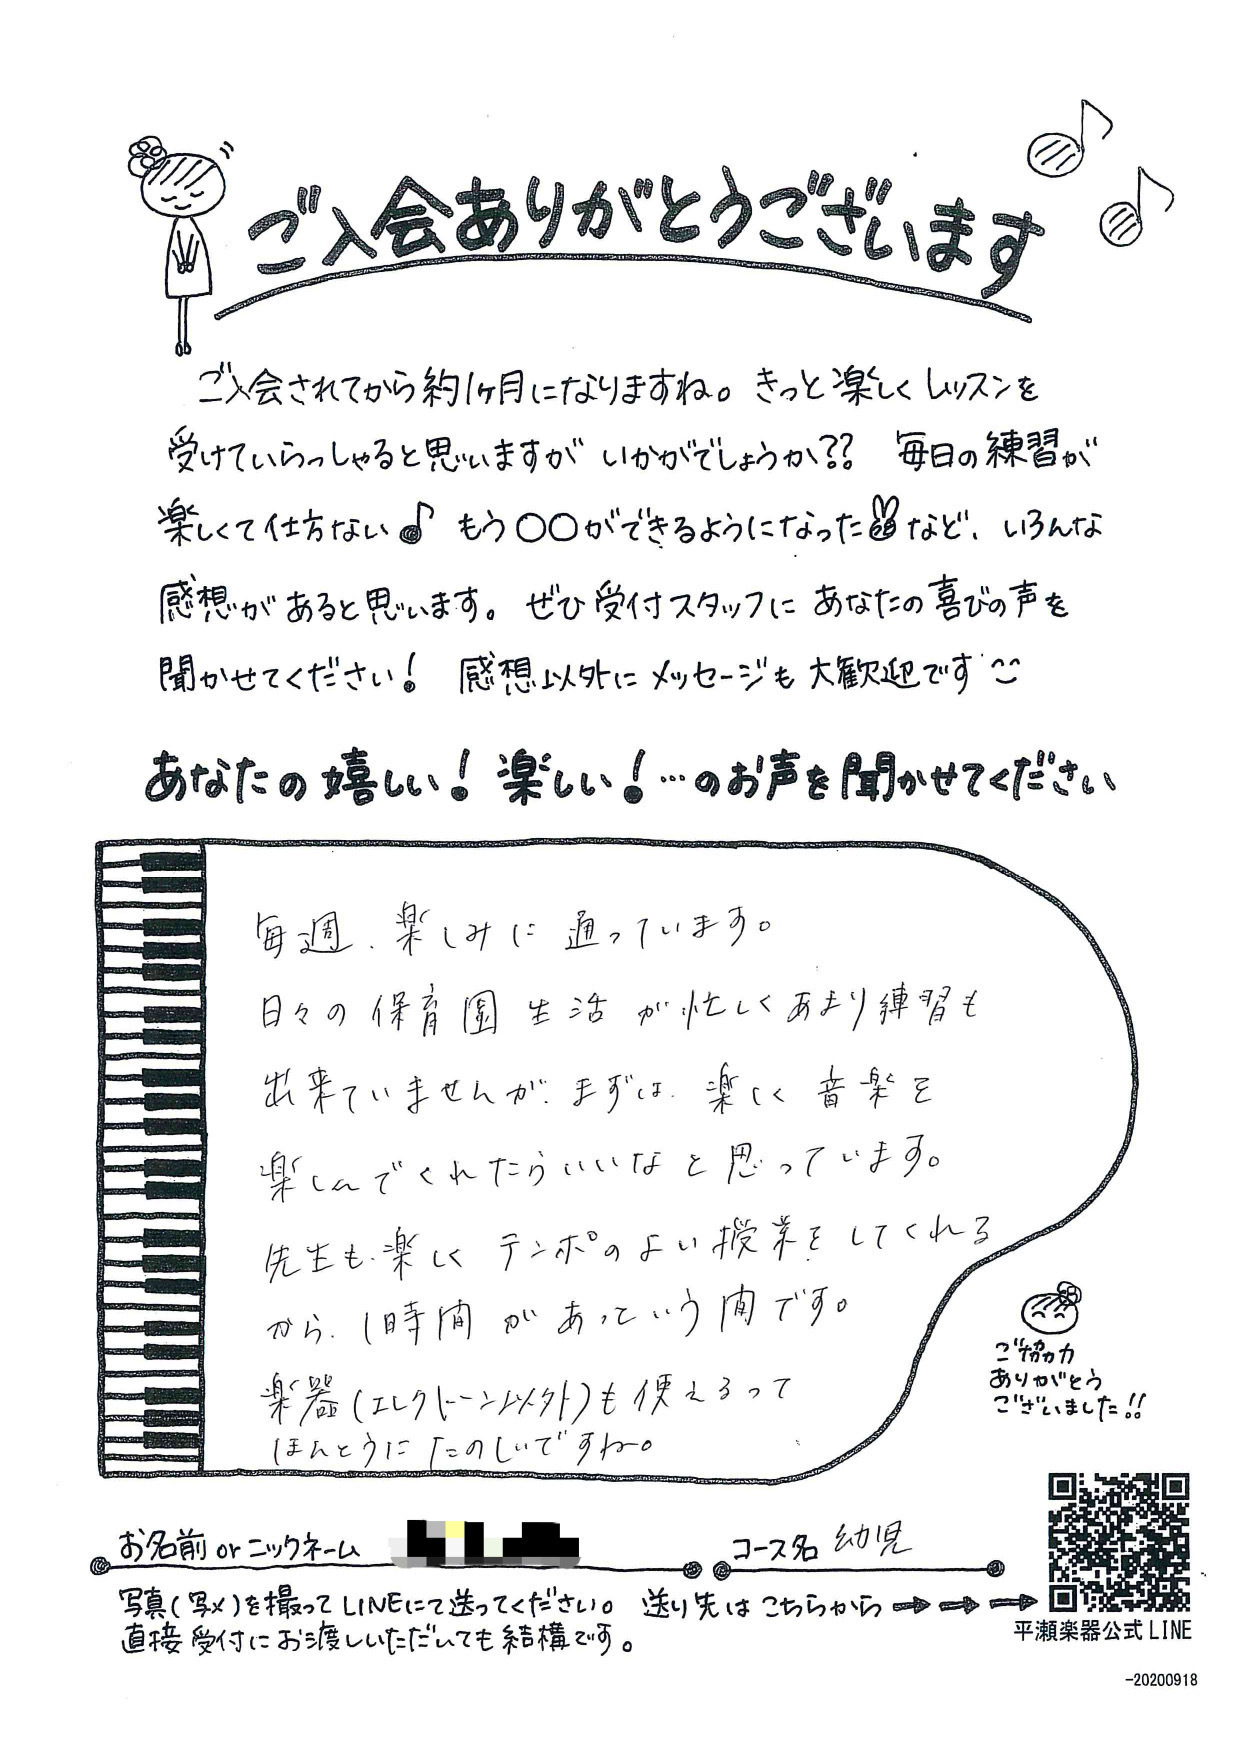 ご入会ありがとうございます
ご入会されてから約1ヶ月になりますね。きっと楽しくレッスンを
受けていらっしゃると思いますがいかがでしょうか?? 毎日の練習が
楽しくて仕方ない♪ もう〇〇ができるようになった など、いろんな
感想があると思います。ぜひ受付スタッフにあなたの喜びの声を
聞かせてください! 感想以外にメッセージも大歓迎です
あなたの嬉しい!楽しい!…のお声を聞かせてください
毎週、楽しみに通っています。
日々の保育園生活が忙しくあまり練習も
出来ていませんが、まずは、楽しく音楽を
楽しんでくれたらいいなと思っています。
先生も、楽しくテンポのよい授業をしてくれる
から、1時間があっという間です。
楽器(エレクトーン以外)も使えるって
ほんとうにたのしいですね。
ご協力
ありがとう
ございました!!
お名前orニックネーム
コース名 幼児
写真(写メ)を撮ってLINEにて送ってください。 送り先はこちらから→→→
直接受付にお渡しいただいても結構です。
平瀬楽器公式LINE
-20200918